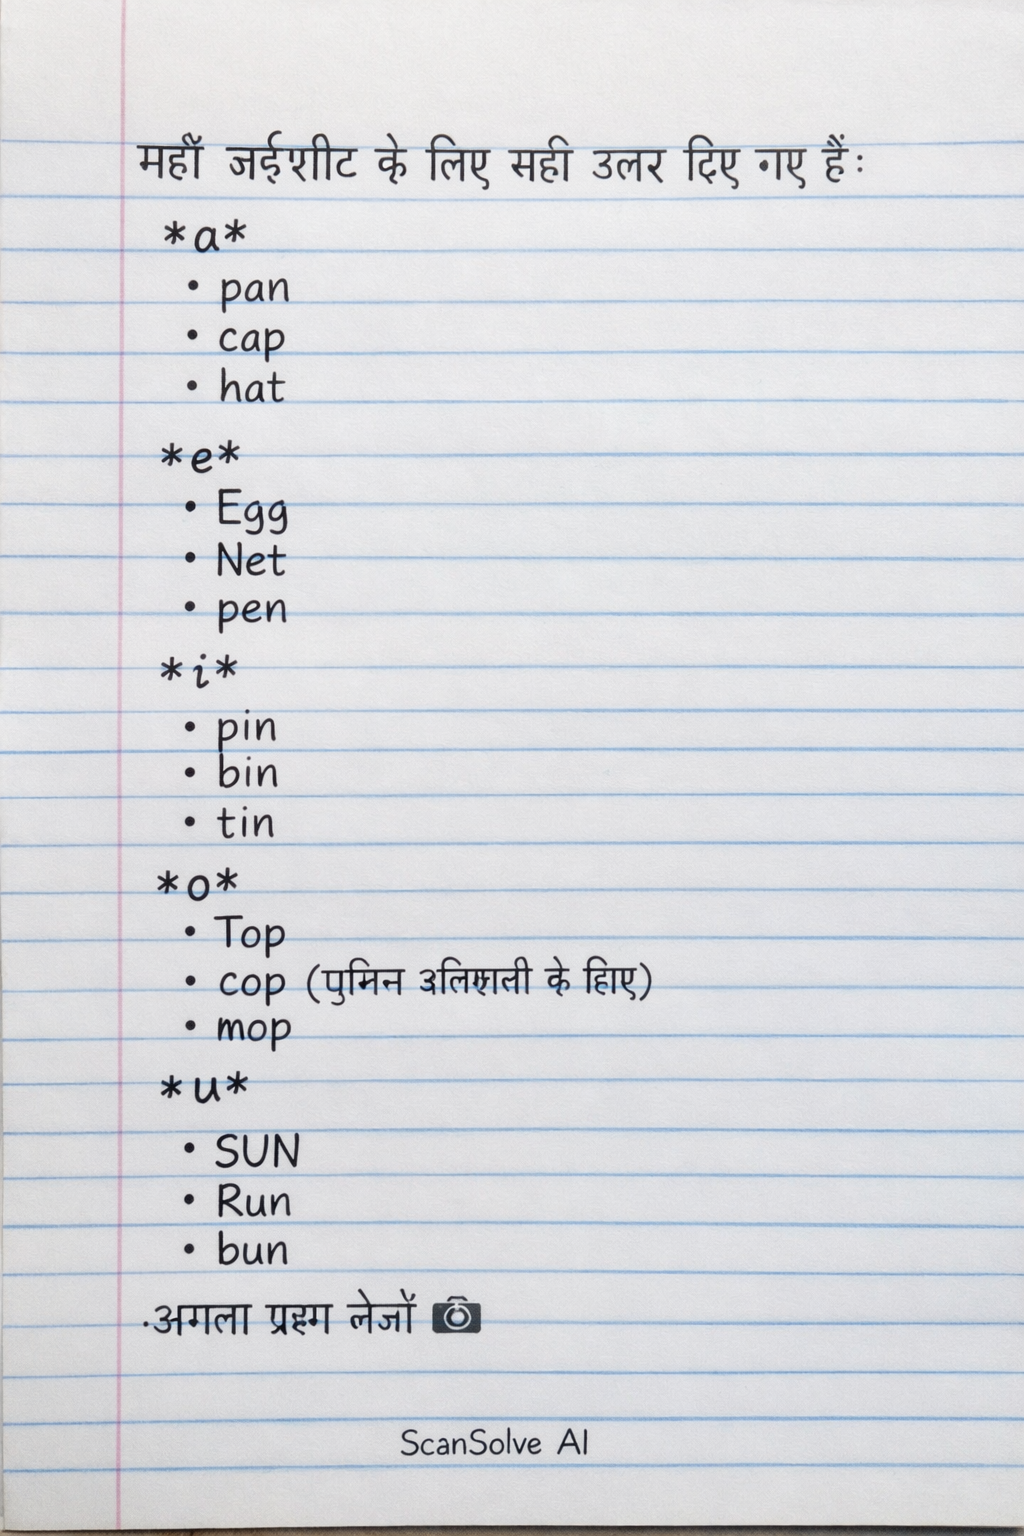 महाँ जईशीट के लिए सही उलर दिए गए हैं:
*a*
• pan
• cap
• hat
*e*
• Egg
• Net
• pen
*i*
• pin
• bin
• tin
*o*
• Top
• cop (पुमिन के
• mop
*u*
• SUN
• Run
• bun
.अगला लेजों
ScanSolve AI